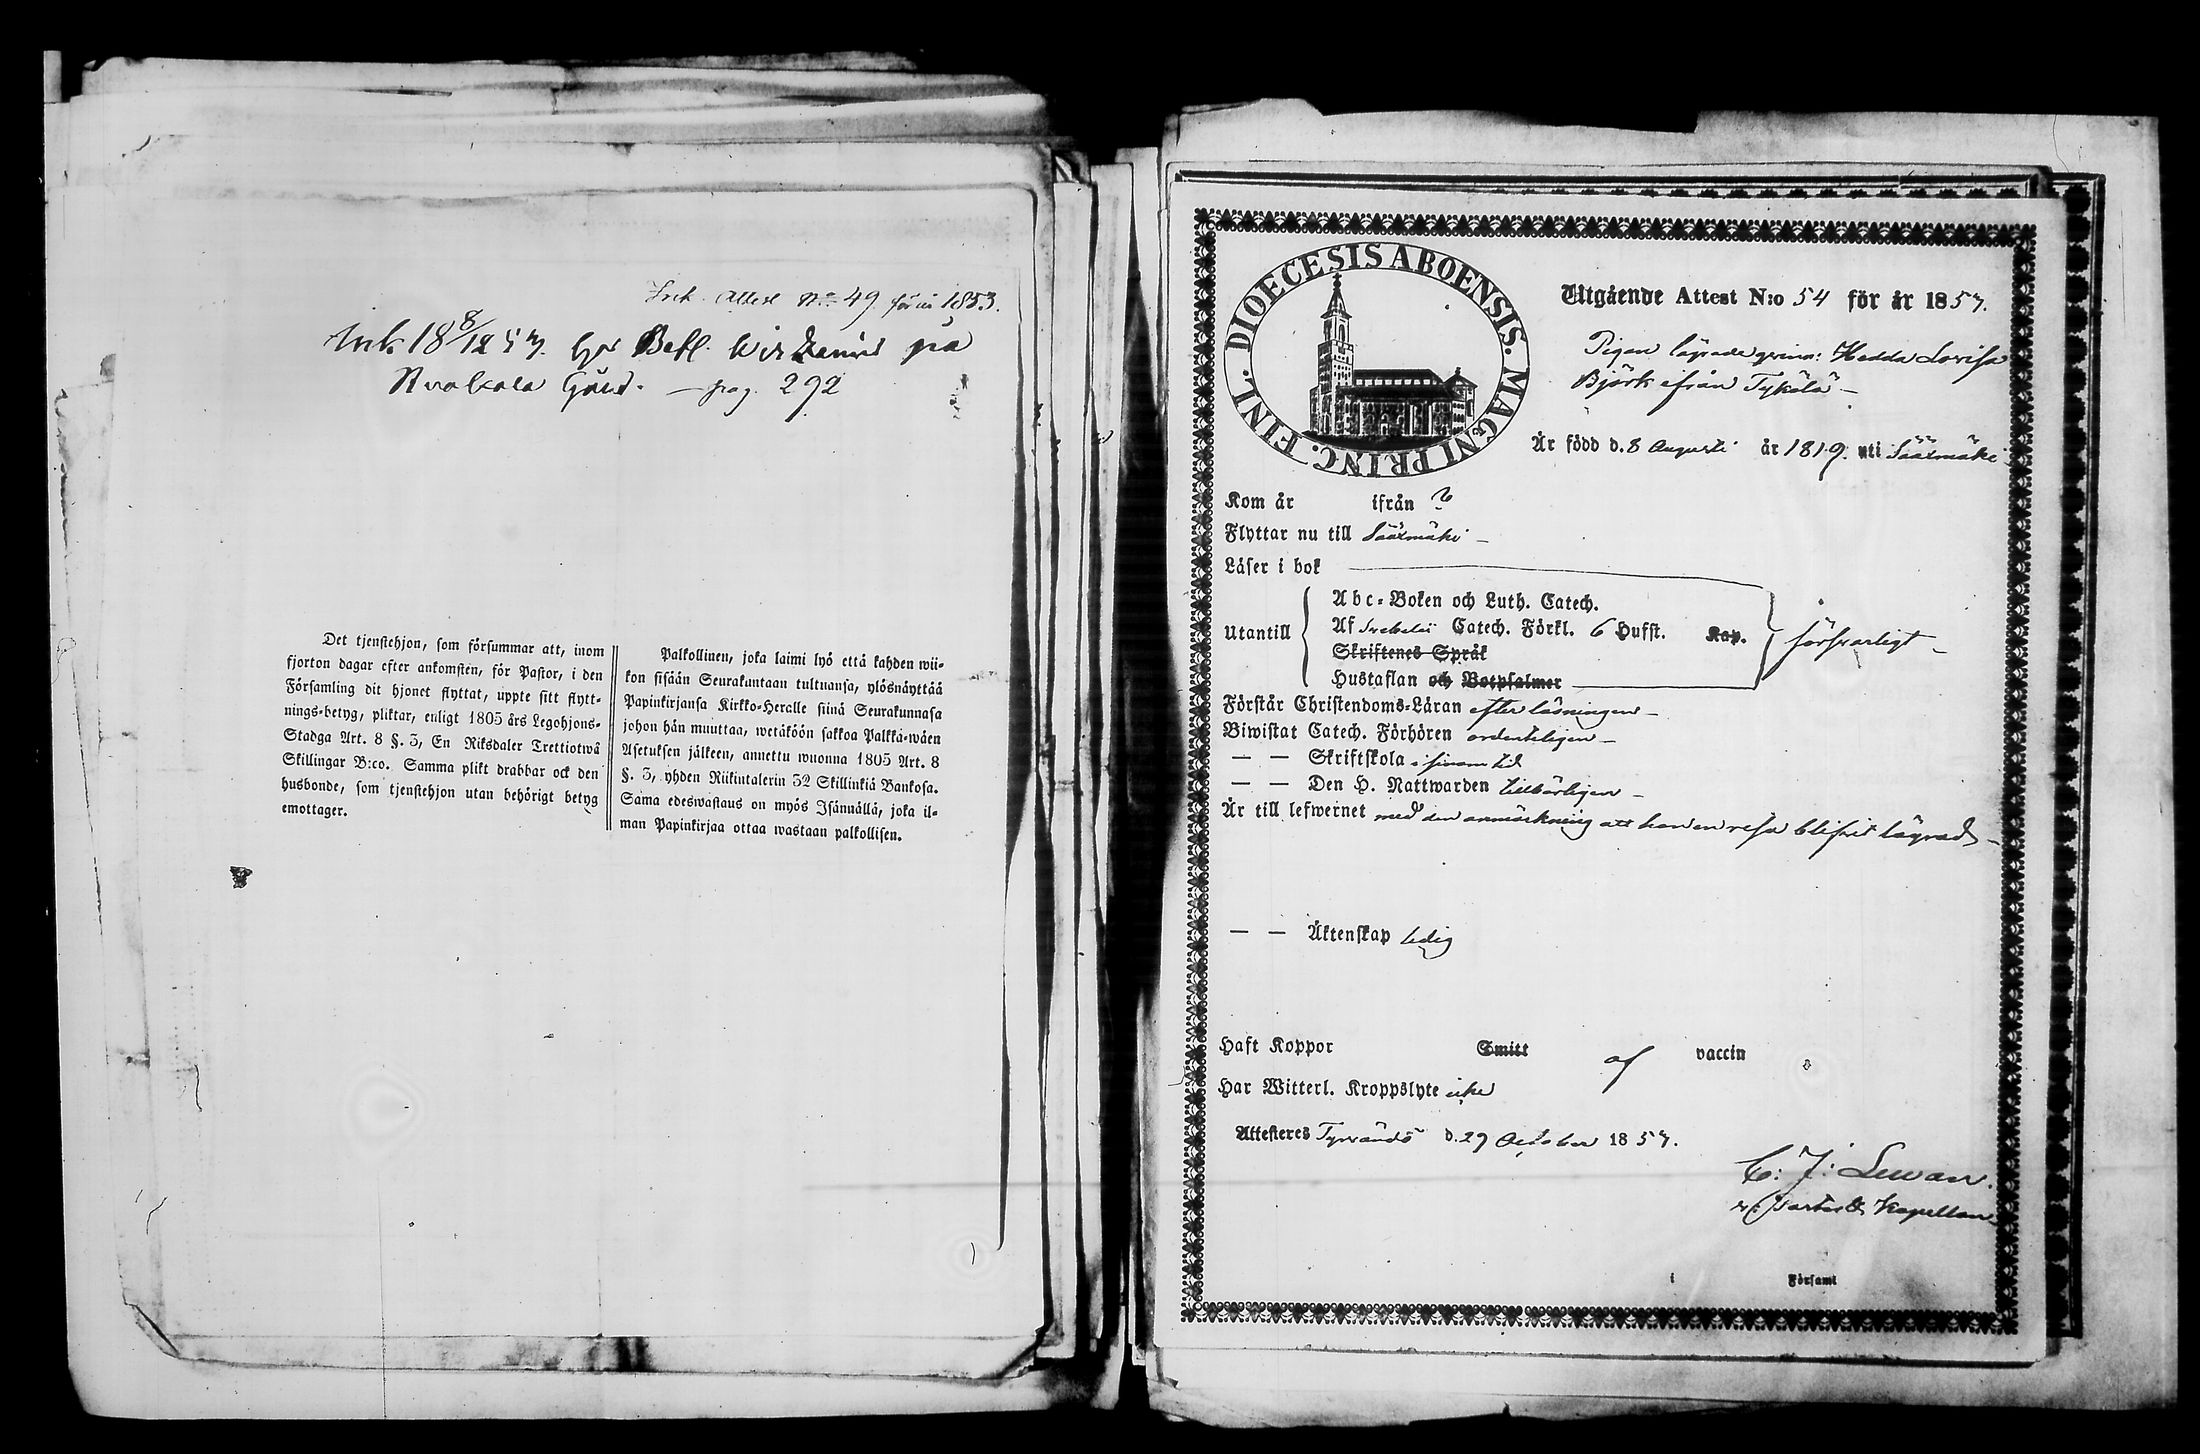 Ink. Attest No 49 för år 1853.
Ink 18 8/12 57. hos Befl. på
Gård. — pag. 292
Det tjenstehjon, som försummar att, inom
fjorton dagar efter ankomsten, för Pastor, i den
Församling dit hjonet flyttat, uppte sitt flytt-
nings-betyg, pliktar, enligt 1805 års Legohjons-
Stadga Art. 8 §. 3, En Riksdaler Trettiotwå
Skillingar B:co. Samma plikt drabbar ock den
husbonde, som tjenstehjon utan behörigt betyg
emottager.
Palkollinen, joka laimi lyö että kahden wii-
kon sisään Seurakuntaan tultuansa, ylösnäyttää
Papinkirjansa Kirkko-Heralle siinä Seurakunnasa
johon hän muuttaa, wetäköön sakkoa Palkka-wäen
Asetuksen jälkeen, annettu wuonna 1805 Art. 8
§. 3, yhden Riikintalerin 32 Skillinkiä Bankosa.
Sama edeswastaus on myös Isännällä, joka il-
man Papinkirjaa ottaa wastaan palkollisen.
DIOECESIS ABOENSIS. MAGNI PRINC. FINL.
Utgående Attest N:o 54 för år 1857.
Pigan lägrade qvinn: Hedda Lovisa
Björk ifrån Tykölä –
Är född d. 8 Augusti år 1819. uti Sääxmäki
Kom år ifrån ?
Flyttar nu till Sääxmäki –
Läser i bok
Utantill
Abc-Boken och Luth. Catech.
Af Svebelii Catech. Förkl. 6 Hufst. Kap.
Skriftenes Språk
Hustaflan och Botpsalmer
försvarligt –
Förstår Christendoms-Läran efter läsningen –
Biwistat Catech. Förhören ordenteligen –
— — Skriftskola i sinom tid
— — Den H. Nattwarden tillbörligen –
Är till lefwernet med den anmärkning att hon en resa blifvit lägrad –
— — Äktenskap ledig
Haft Koppor Smitt af vaccin
Har Witterl. Kroppslyte icke
Attesteres Tyrvändö d. 29 October 1857.
C: J: Lewan.
Kapellan
i Församl